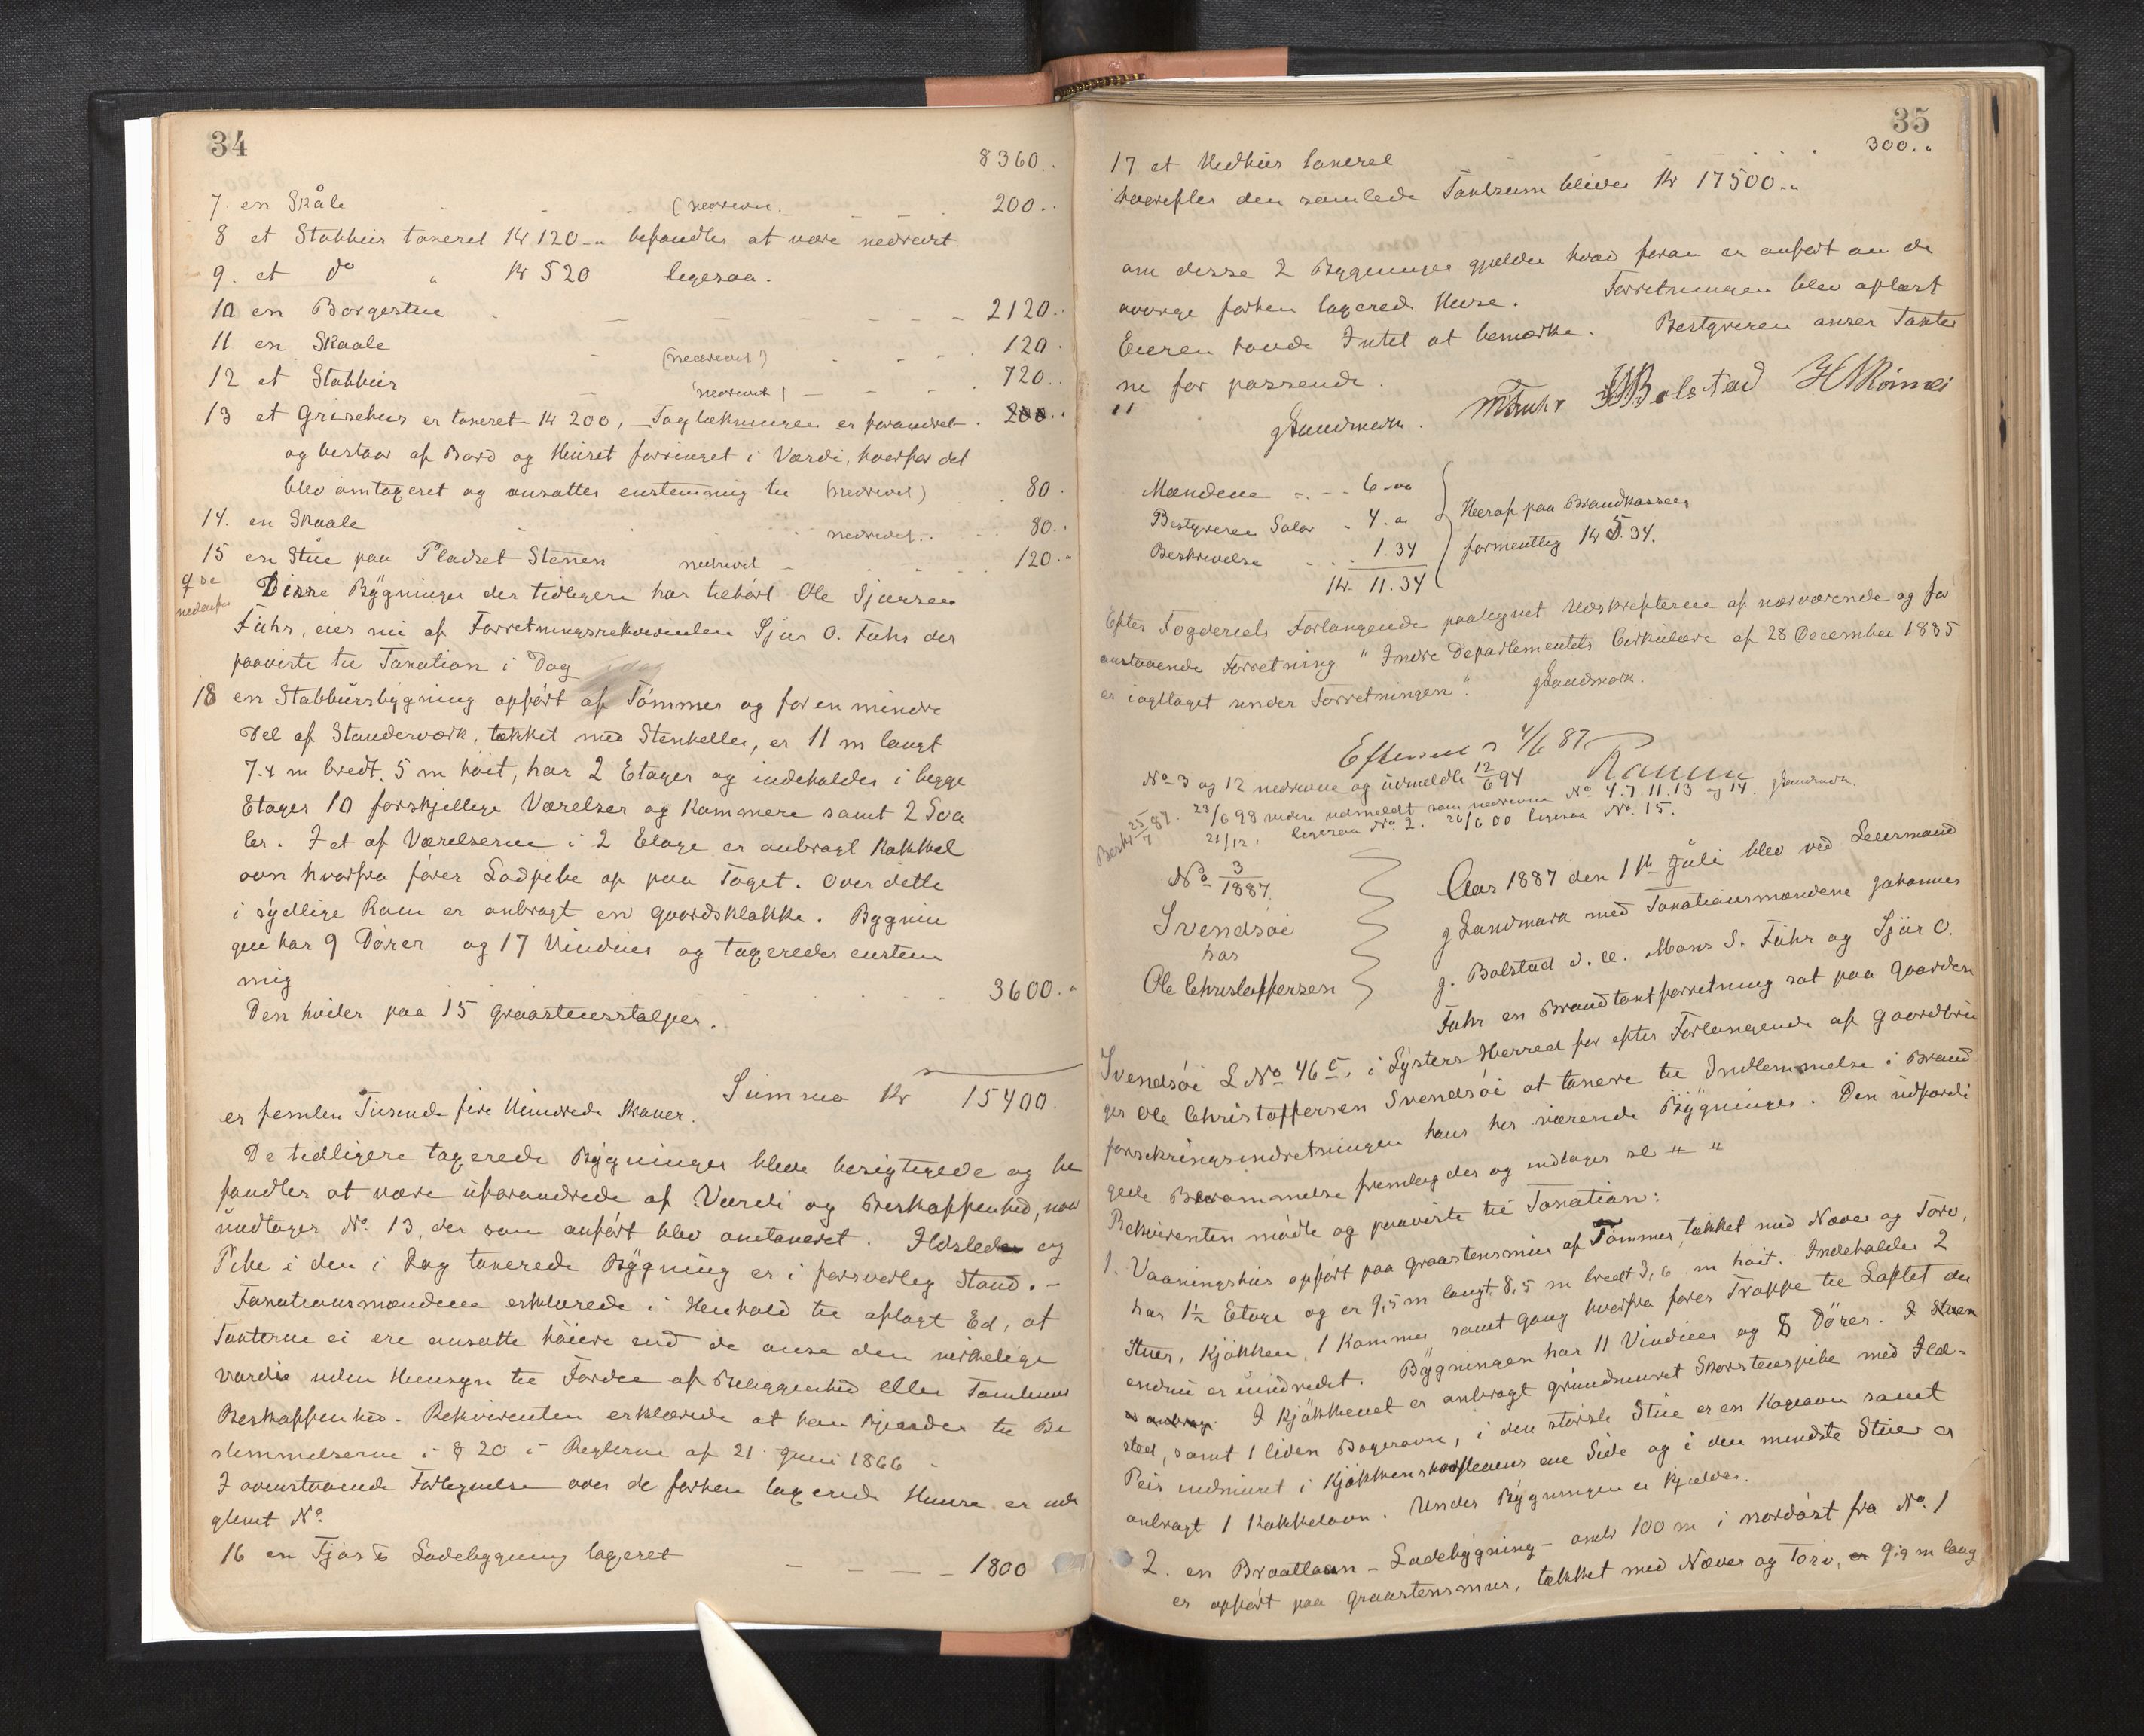 34
8360..
7. en Skåle (nedreven. 200..
8 et Stabbur taxeret Kr 120.. befandtes at være nedrevet.
9. et do " Kr 520 ligesaa.
10 en Borgestue 2120..
11 en Skaale (nedrevet) 120.
12 et Stabbur (nedrevet) 720..
13 et Grisehus er taxeret Kr 200, Tagtækningen er forandret 200..
og bestaar af Bord og Huset forringet i Værdi, hvorfor det
blev omtaxeret og ansattes enstemmig til (nedrevet) 80.
14. en Skaale nedrevet.. 80..
15 en Stue paa Pladset Stenen nedrevet 120..
nedenfor
Disse Bygninger der tidligere har tilhørt Ole Sjursen
Fuhr, eies nu af Forretningsrekvirenten Sjur O. Fuhr der
paaviste til Taxation i Dag
18 en Stabbursbygning opført af Tømmer og for en mindre
Del af Standerværk, tækket med Stenheller, er 11 m langt
7.4 m bredt, 5 m høit, har 2 Etager og indeholder i begge
Etager 10 forskjellige Værelser og Kammere samt 2 Sva
ler. I et af Værelserne i 2 Etage er anbragt Kakkel
ovn hvorfra fører Lodpibe op paa Taget. Over dette
i sydlige Rom er anbragt en Gaardsklokke. Bygnin
gen har 9 Dører og 17 Vinduer og taxeredes enstem
mig 3600..
Den hviler paa 15 graastensstolper.
Summa Kr 15400.
er femten Tusende fire Hundrede Kroner.
De tidligere taxerede Bygninger bleve besigtigede og be
fandtes at være uforandrede af Værdi og Beskaffenhed, naar
undtages No. 13, der som anført blev omtaxeret. Ildsteder og
Pibe i den i Dag taxerede Bygning er i forsvarlig Stand. -
Taxationsmændene erklærede i Henhold til aflagt Ed, at
Taxterne ei ere ansatte høiere end de anse den virkelige
værdie uden Hensyn til Fordee af Beliggenhed eller Tomtens
Beskaffenhed. Rekvirenten erklærede at han kjender til Be
stemmelserne i § 20 i Reglerne af 21 Juni 1866
I ovenstaaende Fortegnelse over de forhen taxerede Huuse er ude
glemt No.
16 en Fjøs & Ladebygning taxeret 1800
35
17 et Vedhus taxeret 300..
hvorefter den samlede Taxtsum bliver Kr 17500..
om disse 2 Bygninger gjælder hvad foran er anført om de
øvrige forhen taxerede Huse. Forretningen blev oplæst
Eieren havde Intet at bemærke. Bestyreren anser Taxter
ne for passende.
gLandmark. MFuhr JGBolstad
Mændene 6-00
Bestyreren Salar 4.00
Beskrivelse 1.34
Kr. 11.34
Heraf paa Brandkassen
formentlig Kr 5.34.
Efter Fogderiets Forlangende paategnet Udskrifterne af nærværende og for
anstaaende Forretning "Indre Departementets Cirkulære af 28 December 1885
er iagttaget under Forretningen". gLandmark.
4/6 87
No 3 og 12 nedrevne og udmeldte 12/6 94
23/6 98 videre udmeldt som nedrevne No 4.7.11.13 og 14. gLandmark.
25/7 87. 21/12, ligesaa No. 2. 26/6 00 ligesaa No. 15.
No 3/1887.
Svendsøi
hos
Ole Christoffersen
Aar 1887 den 1ste Juli blev ved Lensmand
g Landmark med Taxationsmændene Johannes
g. Bolstad d. æ. Mons S. Fuhr og Sjur O.
Fuhr en Brandtaxtforretning sat paa Gaarden
Svendsøi L No 46 c, i Lysters Herred for efter Forlangende af Gaardbru
ger Ole Christoffersen Svendsøi at taxere til Indlemmelse i Brand
forsikringsindretningen hans her værende Bygninger. Den udfærdi
gede Berammelse fremlagdes og indtages sl " "
Rekvirenten mødte og paaviste til Taxation:
1. Vaaningshus opført paa graastensmur af Tømmer, tækket med Næver og Torv,
har 1½ Etage og er 9,5 m langt, 8,5 m bredt 3,6 m høit. Indeholder 2
Stuer, Kjøkken, 1 Kammer samt Gang hvorfra fører Trappe til Loftet der
endnu er uindredet. Bygningen har 11 Vinduer og 8 Dører. I Stuen
er anbragt I Kjøkkenet er anbragt grundmuret Skorstenspibe med Ild-
sted, samt 1 liden Bagerovn, i den største Stue er en Kogeovn samt
Peis indmuret i Kjøkkenskorstenens ene Side og i den mindste Stue er
anbragt 1 Kakkelovn. Under Bygningen er Kjælder.
2. en Braatloen - Ladebygning - omtr 100 m i nordøst fra No. 1
er opført paa Graastensmur, tækket med Næver og Torv, er 9.9 m lang